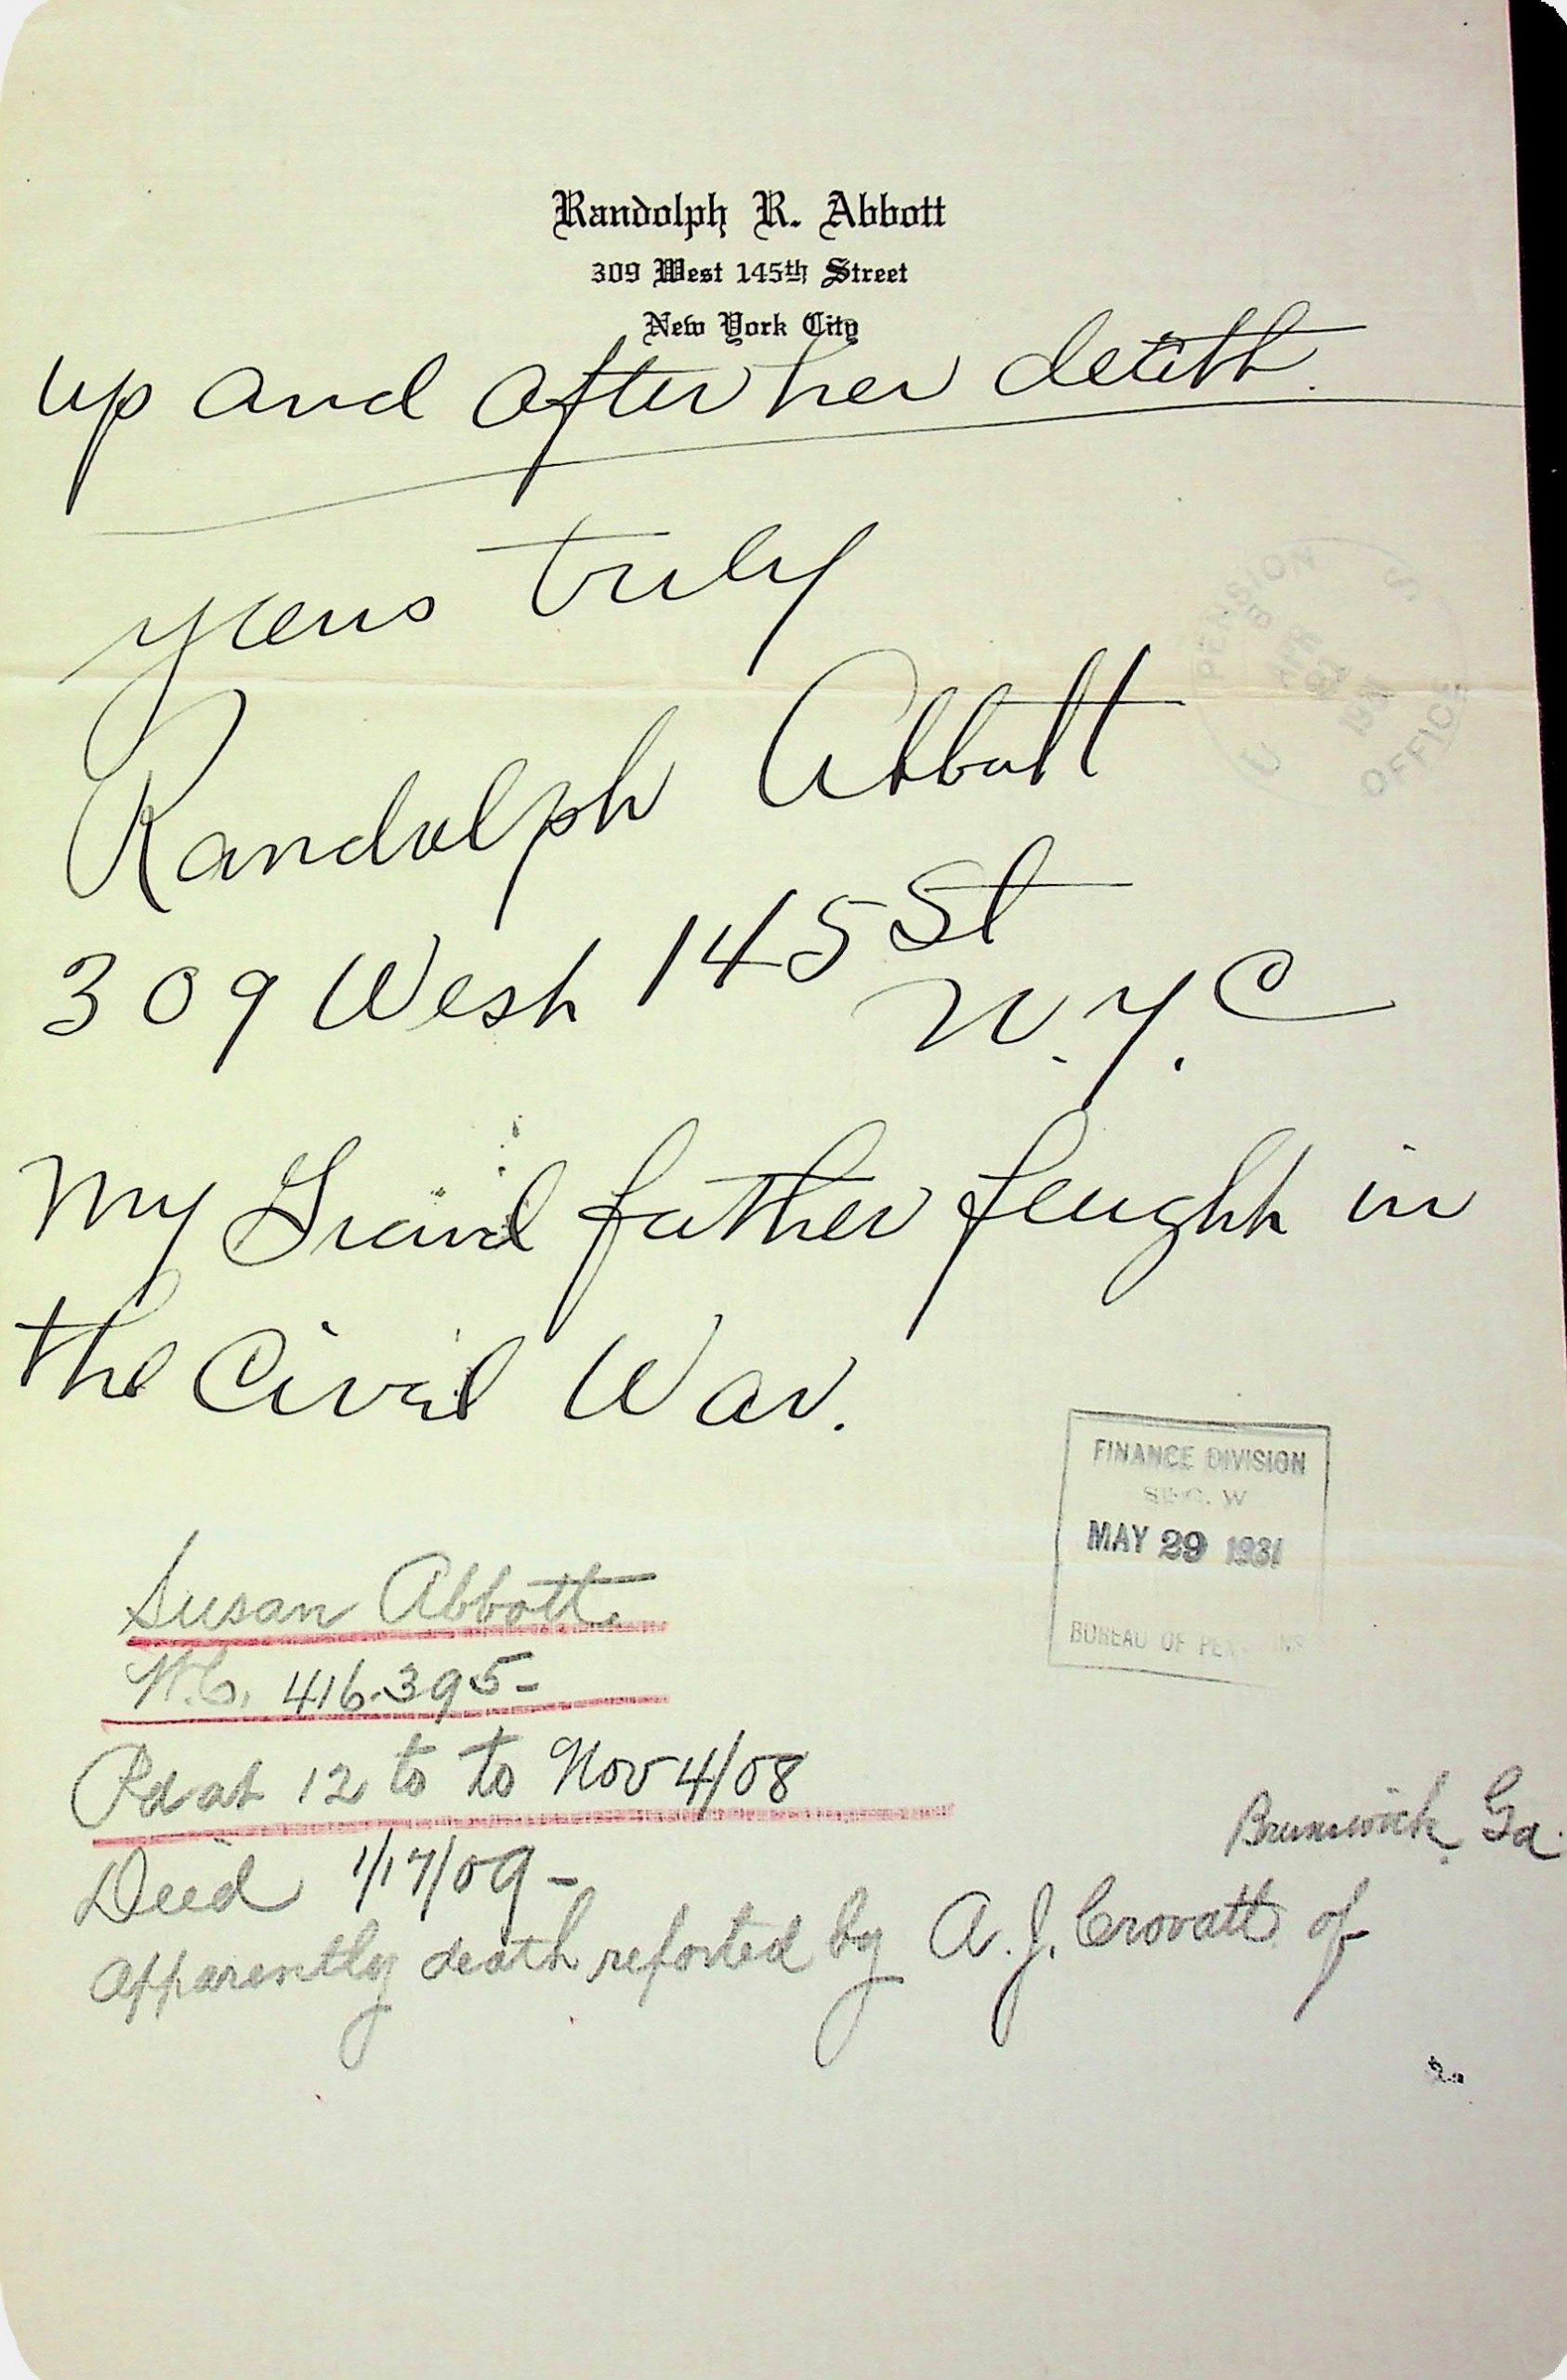 Randolph R. Abbott
309 West 145th Street
New York City
up and after her death.
yours truly
Randolph Abbott
309 West 145 St
N.Y.C
My Grand father fought in
the Civil War.
PENSION OFFICE
U S
APR
FINANCE DIVISION
SEC. W
MAY 29 1931
BUREAU OF PENSIONS
Susan Abbott.
W.C. 416.395-
Pd at 12 to to Nov 4/08
Died 1/17/09-
Brunswick, Ga.
apparently death reported by A. J. Crovatt of